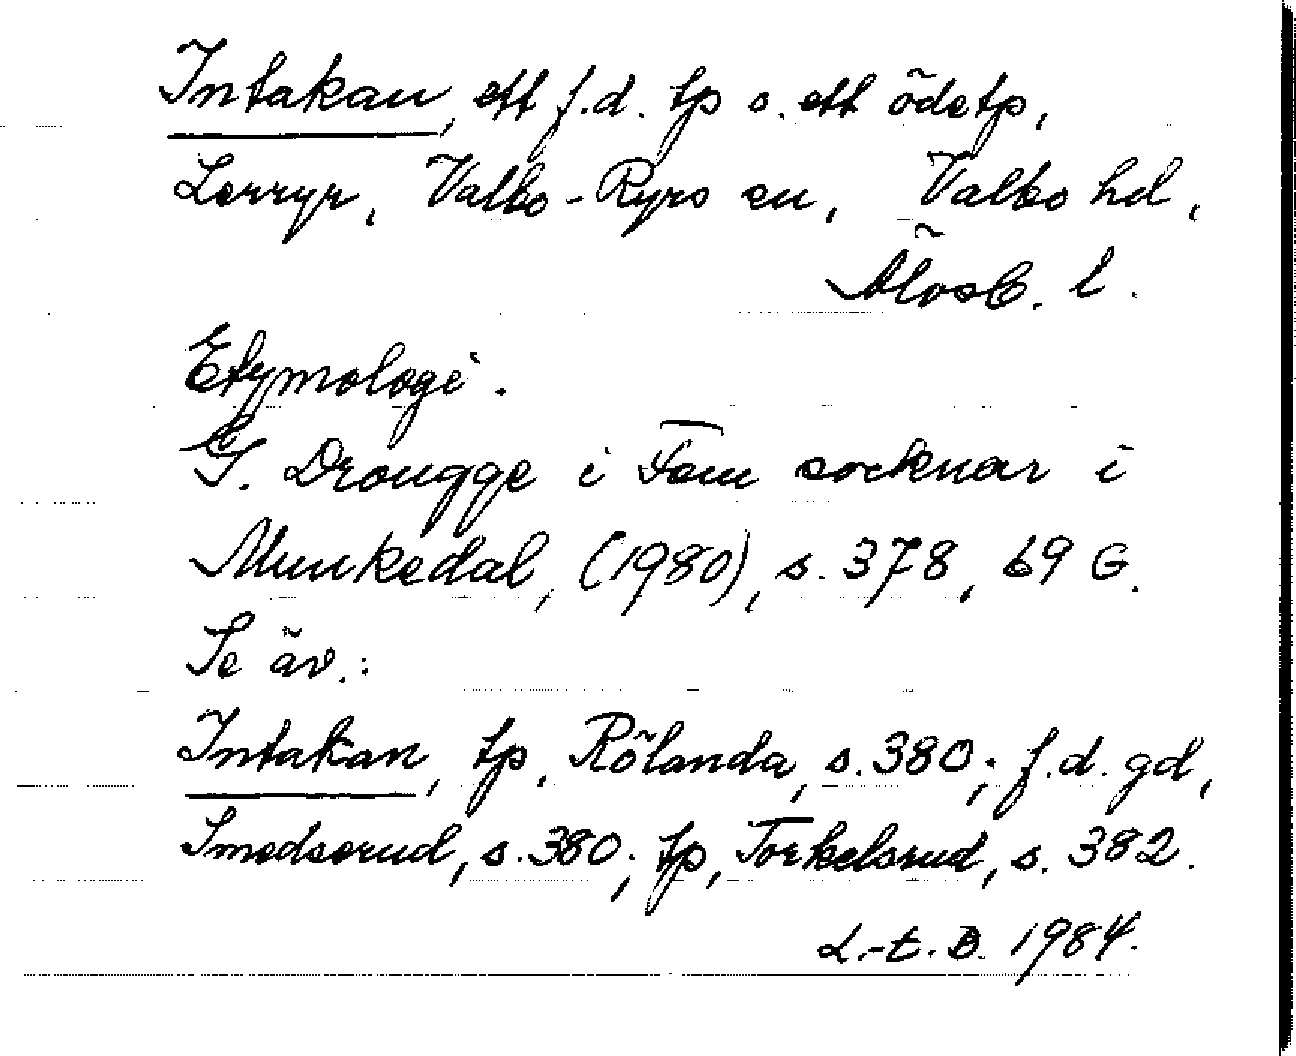 Intakan, ett f.d. tp o. ett ödetp,
Lerryr, Valbo-Ryrs sn, Valbo hd,
Älvsb. l.
Etymologi.
G. Drougge i Fem socknar i
Munkedal, (1980), s. 378, 69 G.
Se äv.:
Intakan, tp, Rölanda, s. 380; f.d. gd,
Smedserud, s. 380; tp, Torkelsrud, s. 382.
L.-E. B. 1984.